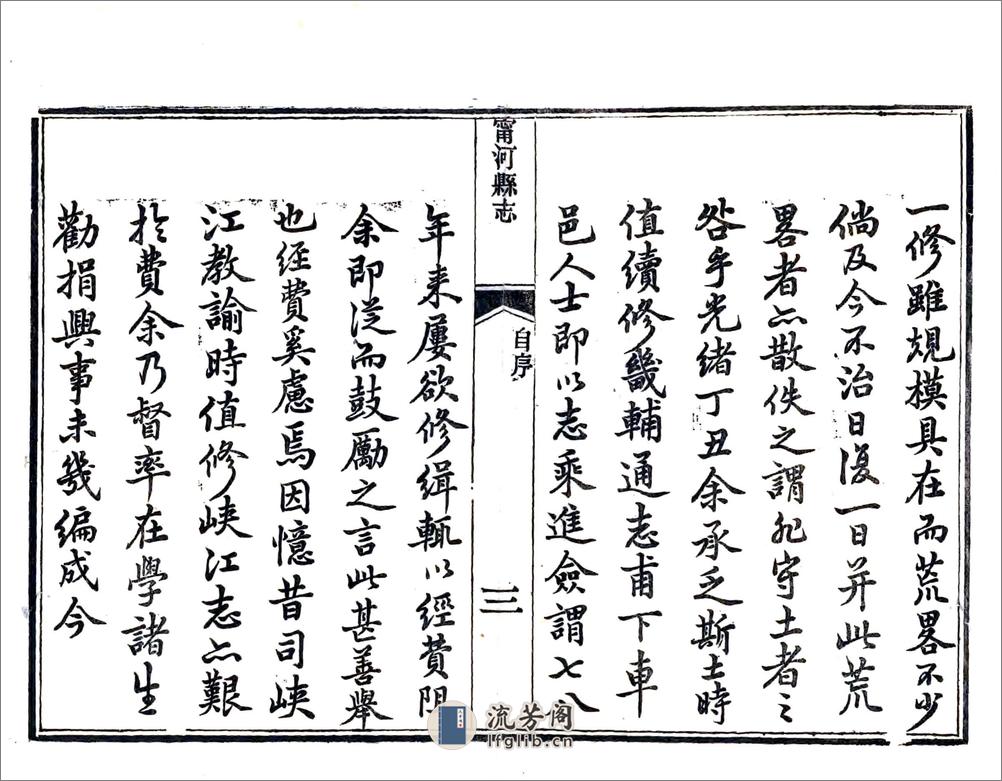 一修雖規模具在而荒畧不少
倘及今不治日復一日并此荒
畧者亦散佚之謂非守土者之
咎乎光緒丁丑余承乏斯土時
值續修畿輔通志甫下車
邑人士即以志乘進僉謂七八
甯河縣志
自序
三
年来屢欲修緝輒以經費阻
余即從而鼓勵之言此甚善舉
也经費奚慮焉因憶昔司峽
江教諭時值修峽江志亦艱
於費余乃督率在學諸生
勸捐興事未幾編成今
流芳阁
lfglib.cn